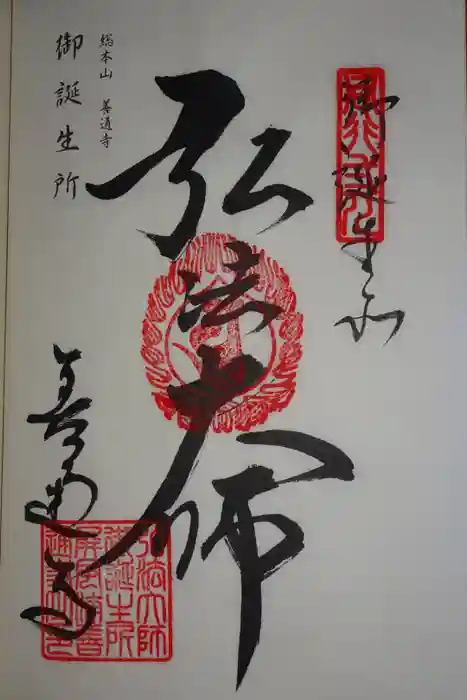 御誕生所
弘法大師
総本山 善通寺
御誕生所
善通寺
弘法大師
御誕生所
屏風浦善
通寺之印